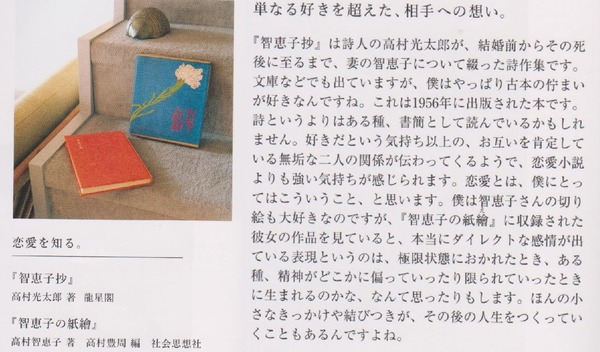 単なる好きを超えた、相手への想い。
『智恵子抄』は詩人の高村光太郎が、結婚前からその死
後に至るまで、妻の智恵子について綴った詩作集です。
文庫などでも出ていますが、僕はやっぱり古本の佇まい
が好きなんですね。これは1956年に出版された本です。
詩というよりはある種、書簡として読んでいるかもしれ
ません。好きだという気持ち以上の、お互いを肯定して
いる無垢な二人の関係が伝わってくるようで、恋愛小説
よりも強い気持ちが感じられます。恋愛とは、僕にとっ
てはこういうこと、と思います。僕は智恵子さんの切り
絵も大好きなのですが、『智恵子の紙繪』に収録された
彼女の作品を見ていると、本当にダイレクトな感情が出
ている表現というのは、極限状態におかれたとき、ある
種、精神がどこかに偏っていったり限られていったとき
に生まれるのかな、なんて思ったりもします。ほんの小
さなきっかけや結びつきが、その後の人生をつくってい
くこともあるんですよね。
恋愛を知る。
『智恵子抄』
高村光太郎 著　龍星閣
『智恵子の紙繪』
高村智恵子 著　高村豊周 編　社会思想社